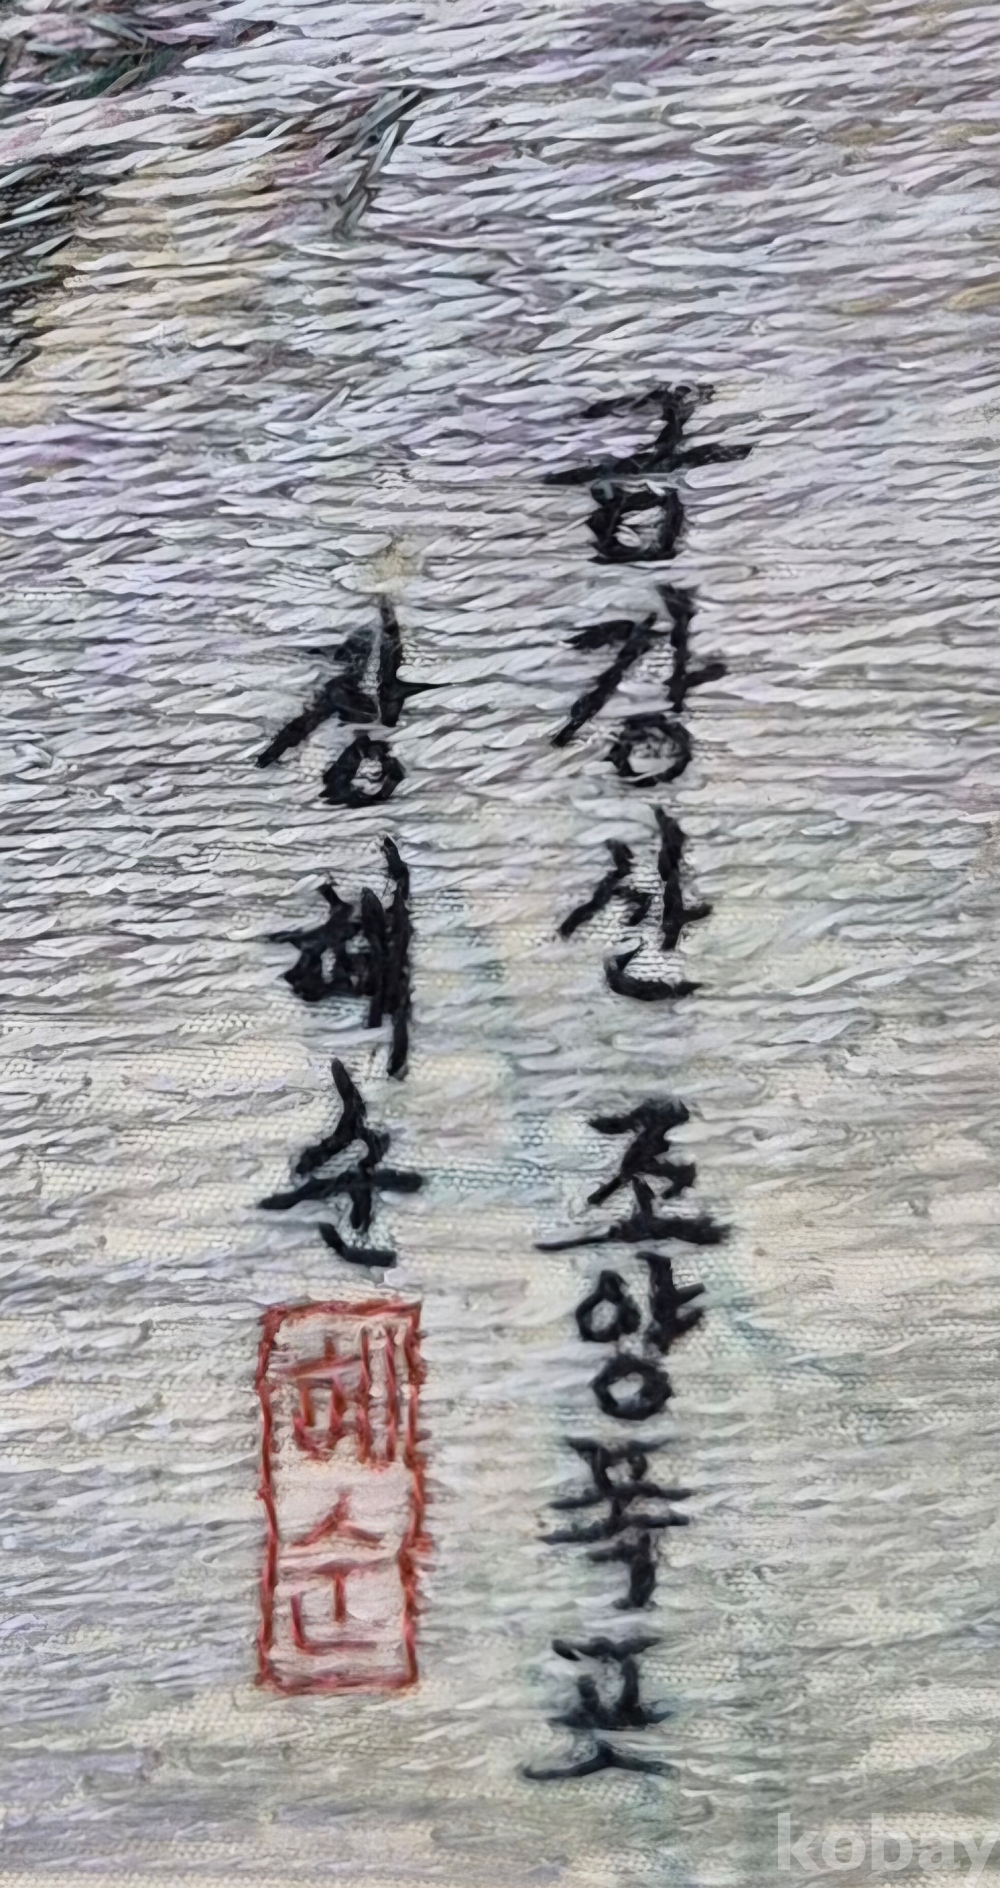 금강산 조양폭포
장혜순
혜순
kobay